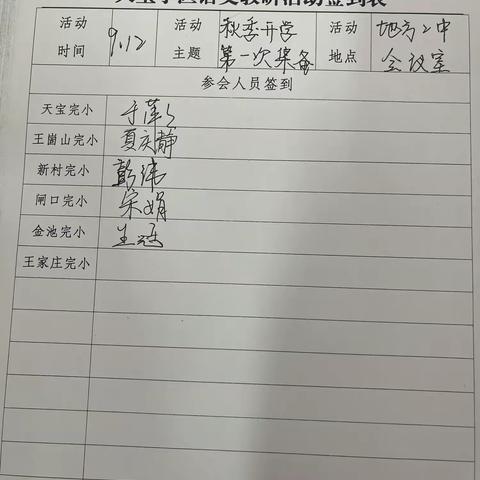 天宝学区语文教研活动签到表
活动时间 9.12 活动主题 秋季开学第一次集备 活动地点 地方2中会议室
参会人员签到
天宝完小
王崮山完小 夏庆静
新村完小 彭纬
闸口完小 宋娟
金池完小
王家庄完小